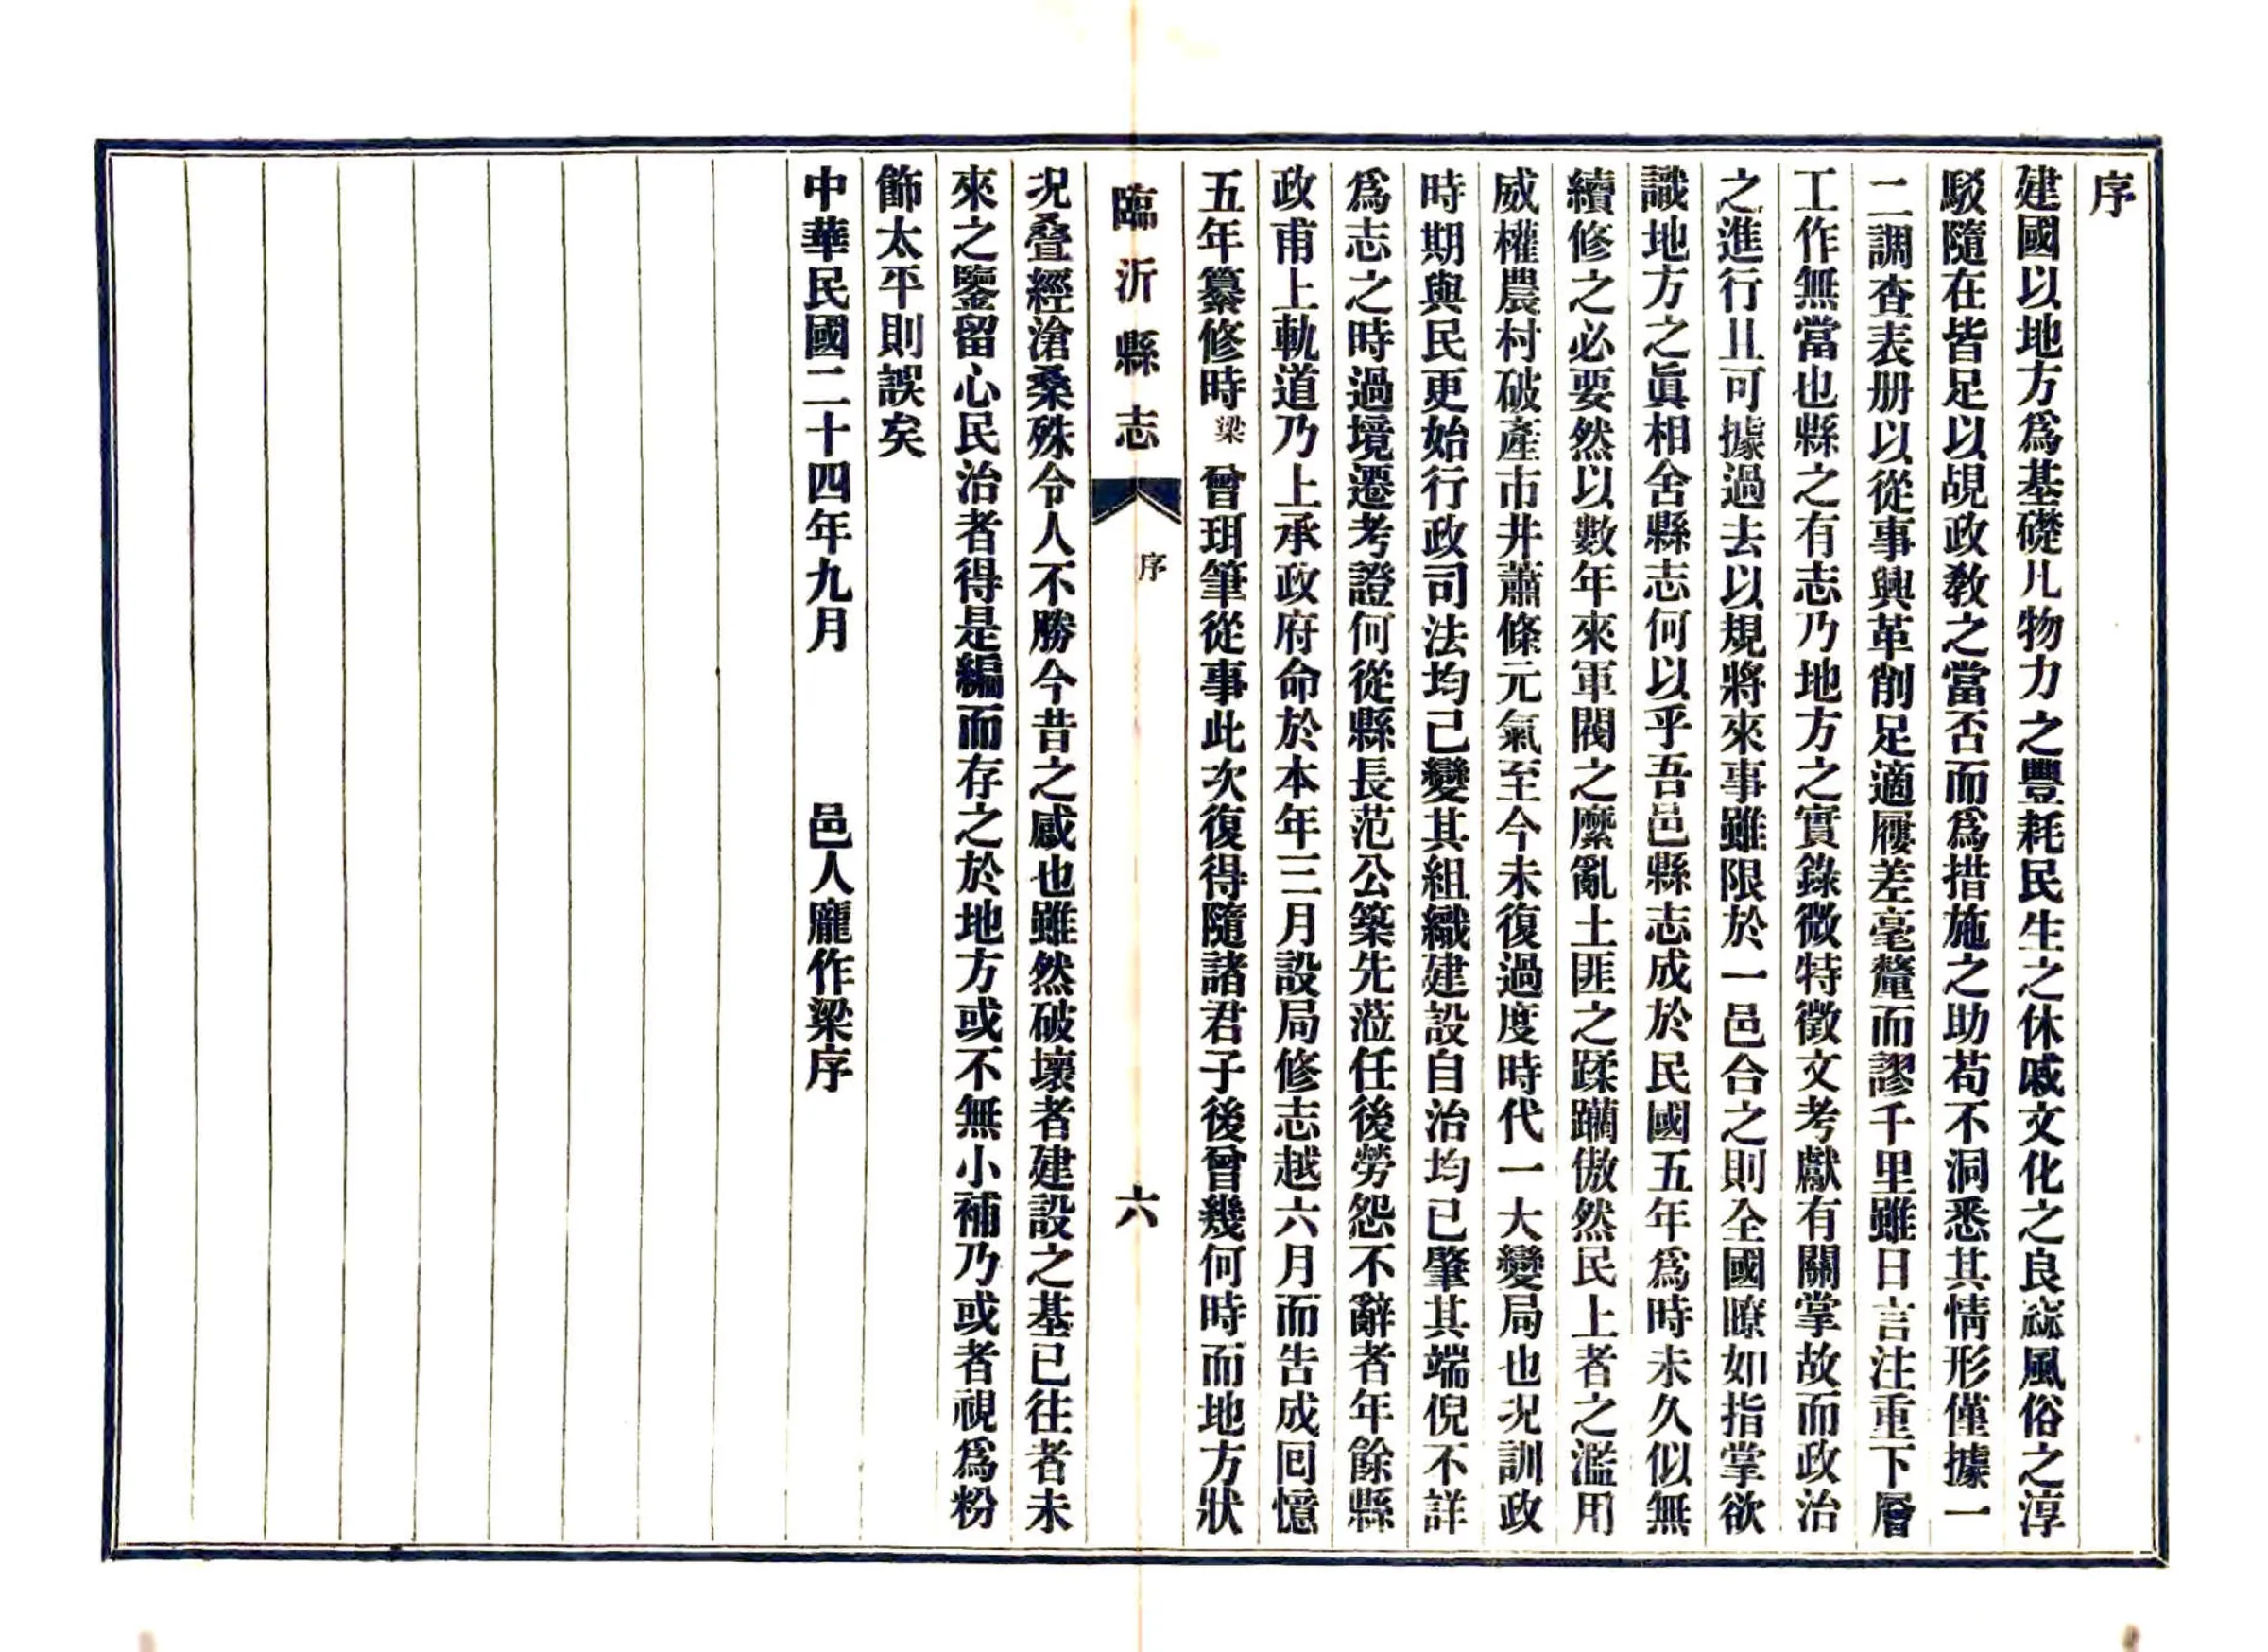 序
建國以地方爲基礎凡物力之豐耗民生之休戚文化之良窳風俗之淳
駁隨在皆足以覘政教之當否而爲措施之助苟不洞悉其情形僅據一
二調查表册以從事興革削足適履差毫釐而謬千里雖日言注重下層
工作無當也縣之有志乃地方之實錄微特徵文考獻有關掌故而政治
之進行且可據過去以規將來事雖限於一邑合之則全國瞭如指掌欲
識地方之眞相舍縣志何以乎吾邑縣志成於民國五年爲時未久似無
續修之必要然以數年來軍閥之縻亂土匪之蹂躪傲然民上者之濫用
威權農村破產市井蕭條元氣至今未復過度時代一大變局也况訓政
時期與民更始行政司法均已變其組織建設自治均已肇其端倪不詳
爲志之時過境遷考證何從縣長范公築先蒞任後勞怨不辭者年餘縣
政甫上軌道乃上承政府命於本年三月設局修志越六月而告成回憶
五年纂修時梁曾珥筆從事此次復得隨諸君子後曾幾何時而地方狀
臨沂縣志
序
六
况叠經滄桑殊令人不勝今昔之感也雖然破壞者建設之基已往者未
來之鑒留心民治者得是編而存之於地方或不無小補乃或者視爲粉
飾太平則誤矣
中華民國二十四年九月 邑人龐作梁序